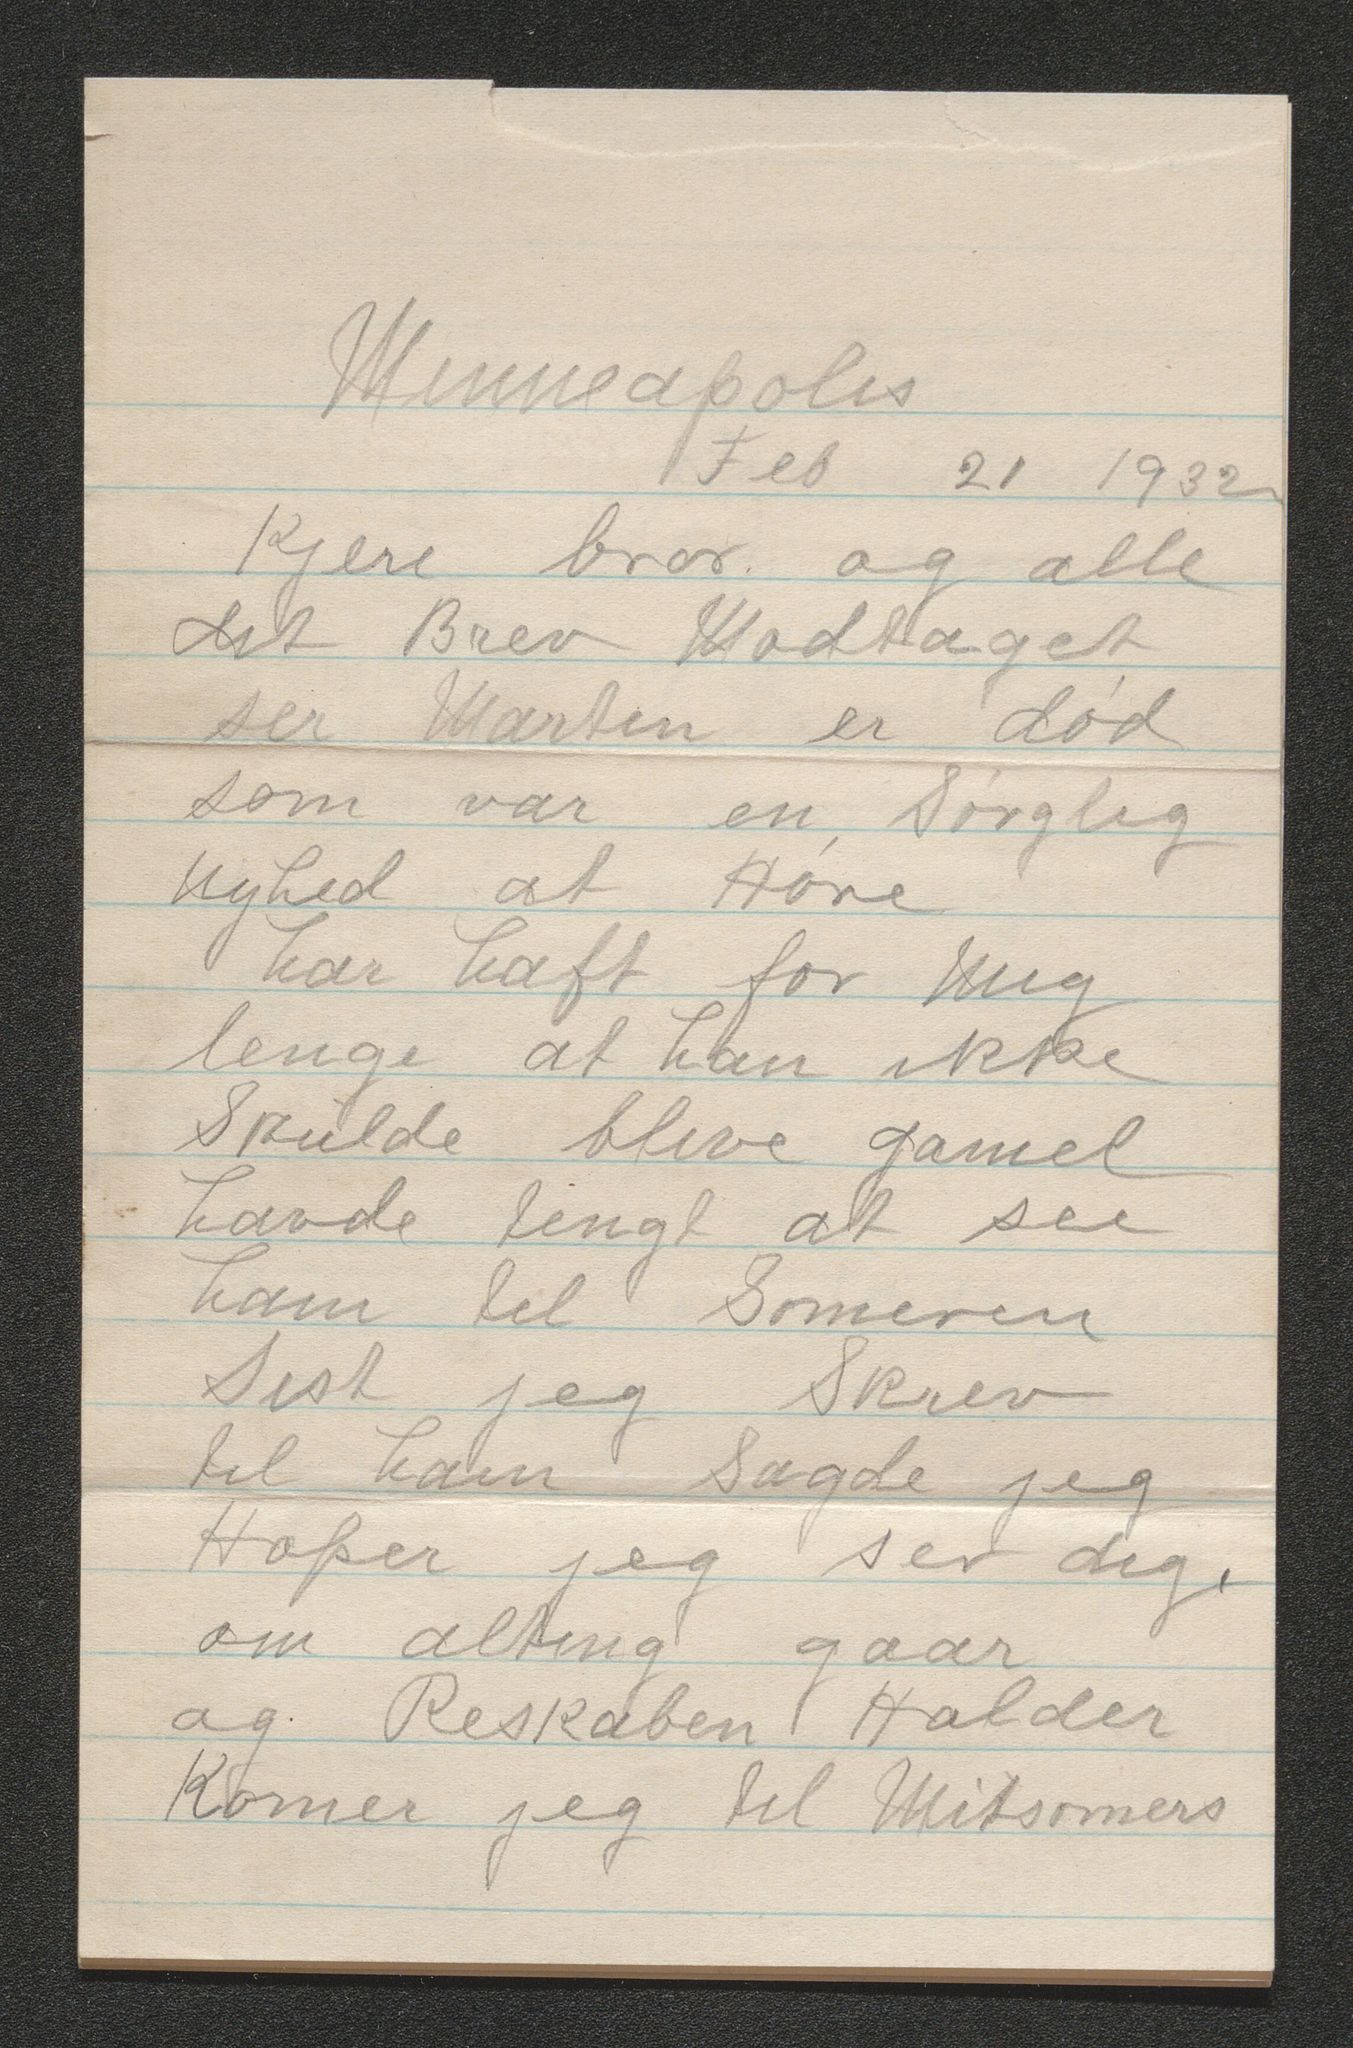 Minneapolis
Feb 21 1932
Kjere bror og alle
dit Brev Modtaget
ser Martin er död
som var en Sörglig
Nyhed at Höre
har haft for Mig
lenge at han ikke
Skulde blive gamel
havde tengt at see
ham til Someren
Sist jeg Skrev
til ham Sagde jeg
Hoper jeg ser dig,
om alting gaar
og Reskaben Holder
Komer jeg til Mitsomers